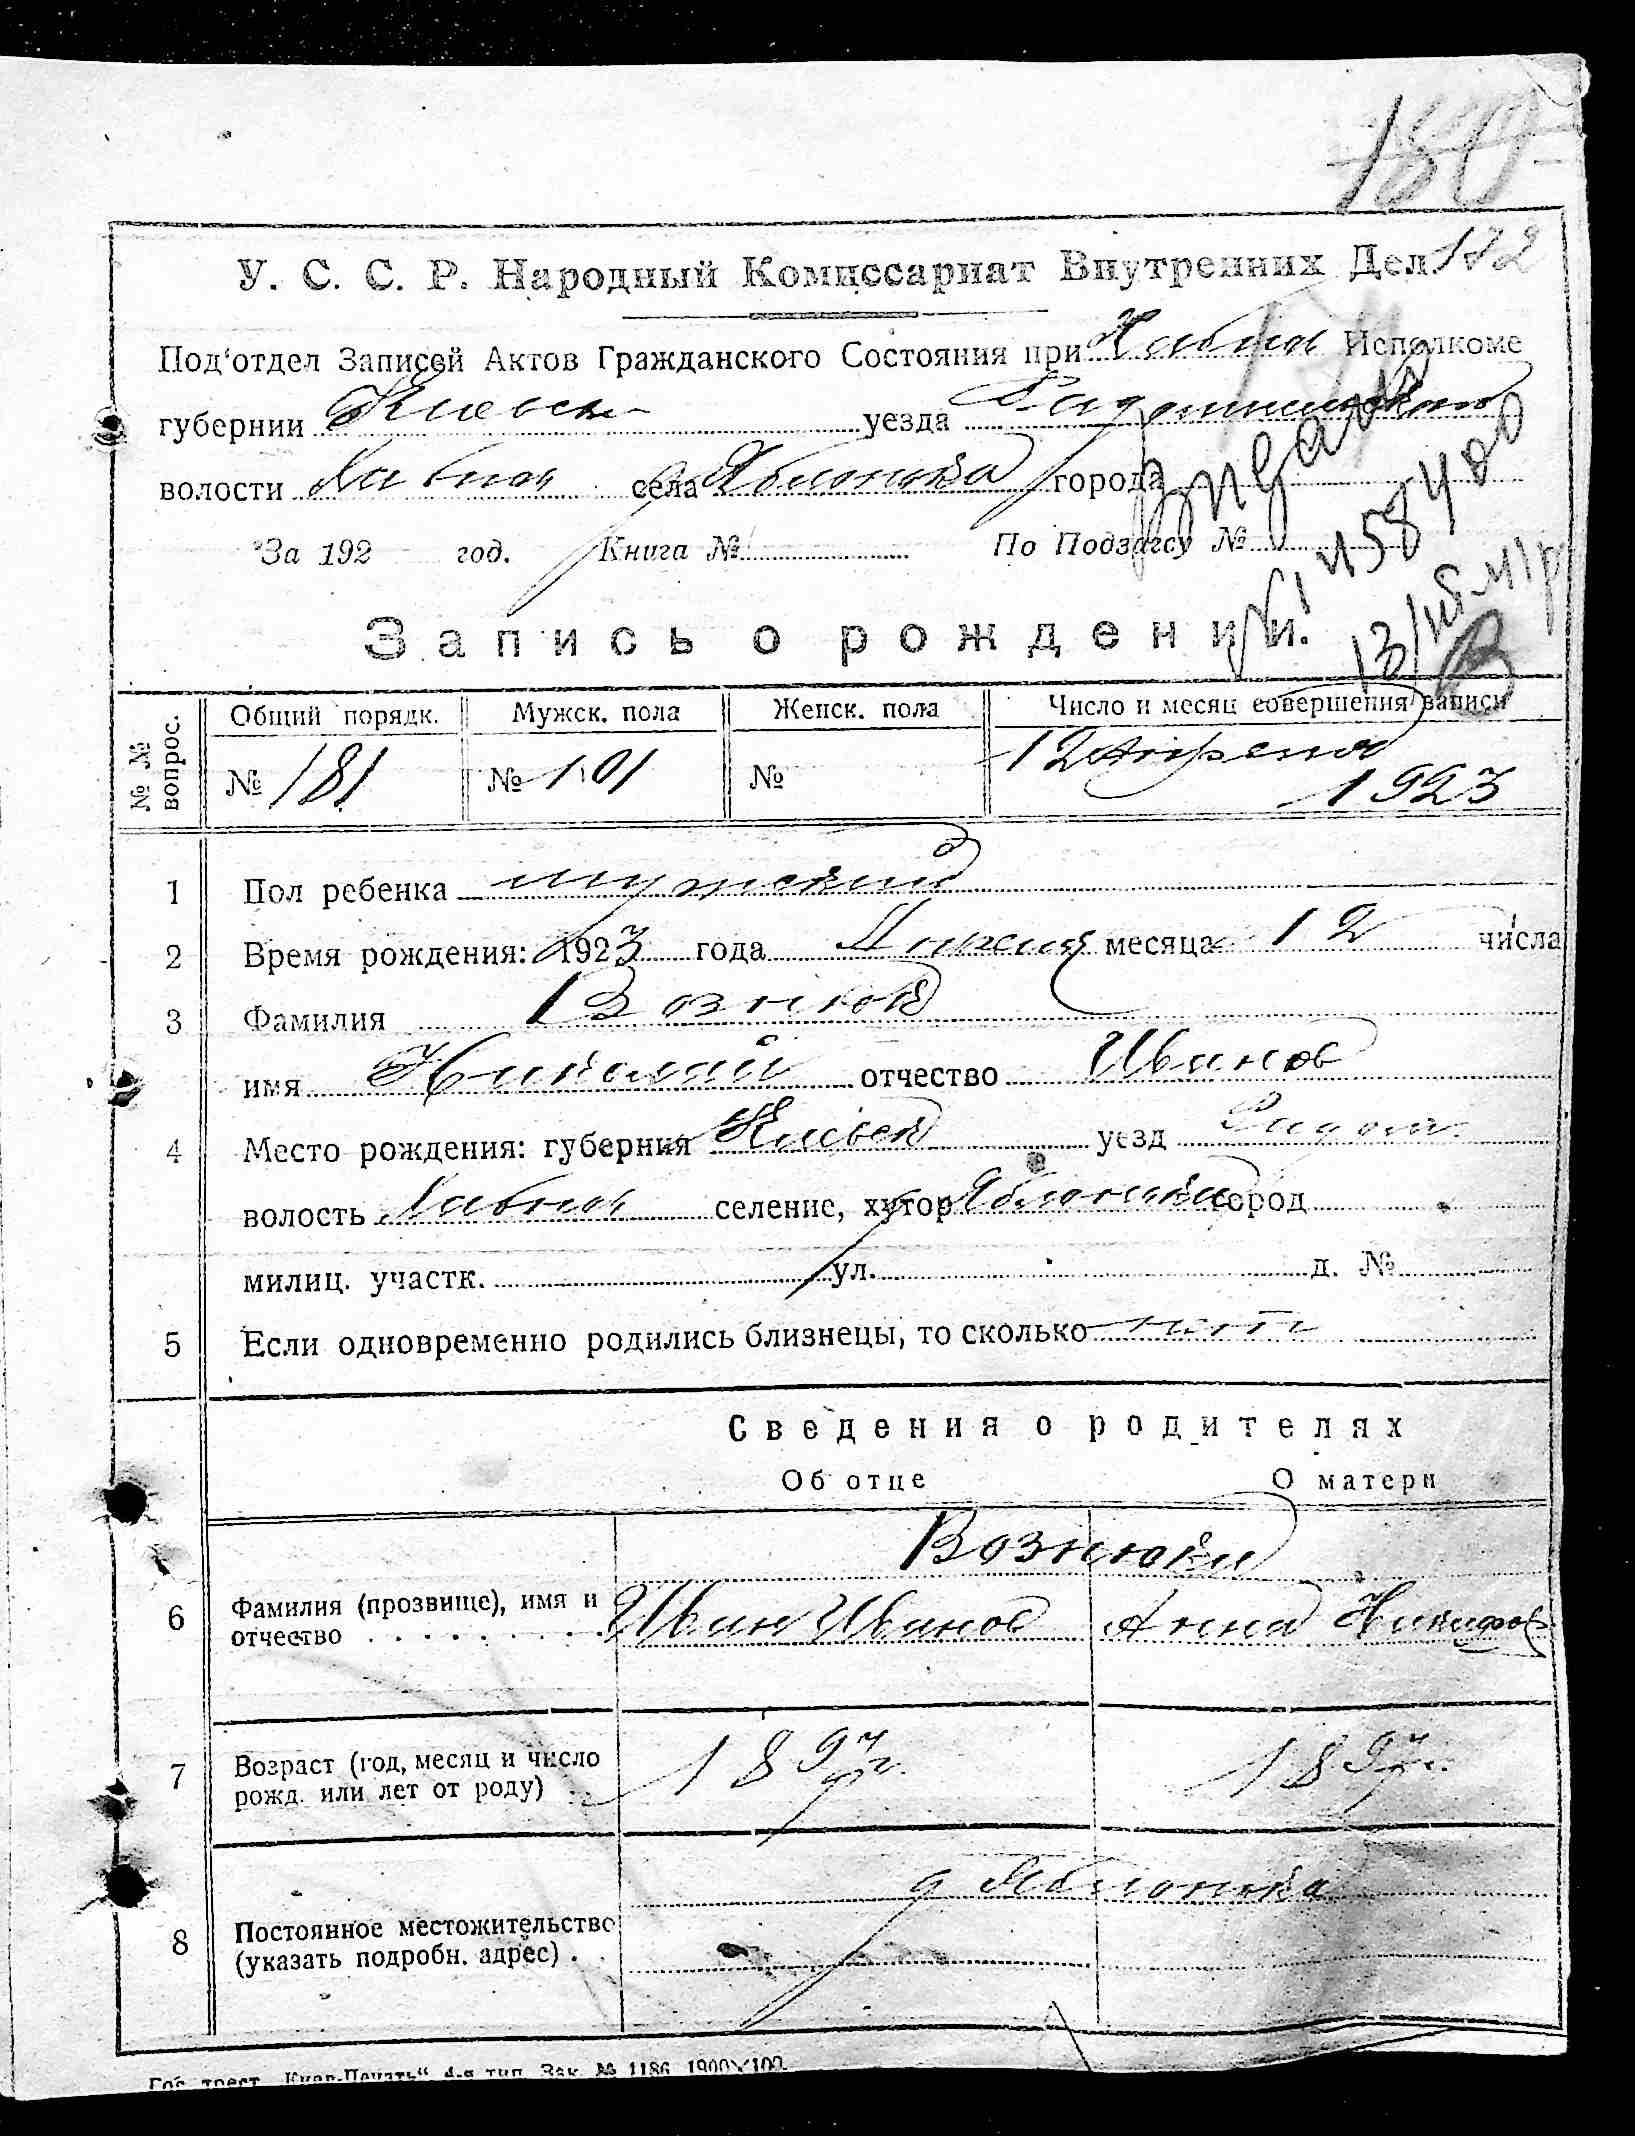 180
172
У. С. С. Р. Народный Комиссариат Внутренних Дел.
Под'отдел Записей Актов Гражданского Состояния при Хабнск Исполкоме
губернии Киевск уезда Радомышльского
волости Хабнск села Яблонька города
За 192 год. Книга № По Подзагсу №
Видано
№ 1458400
Запись о рождении.
№ № вопрос. Общий порядк. Мужск. пола Женск. пола Число и месяц совершения записи
№ 181 № 101 № 12 Апреля
1923
1 Пол ребенка мужский
2 Время рождения: 1923 года Апреля месяца 12 числа
3 Фамилия Вознюк
имя Николай отчество Иванов
4 Место рождения: губерния Киевск уезд Радом.
волость Хабнск селение, хутор Яблонька город
милиц. участк. ул. д. №
5 Если одновременно родились близнецы, то сколько нет
Сведения о родителях
Об отце О матери
Вознюки
6 Фамилия (прозвище), имя и Иван Иванов Анна Никифов
отчество
7 Возраст (год, месяц и число 1897 г. 1897 г.
рожд. или лет от роду)
д Яблонька
8 Постоянное местожительство
(указать подробн. адрес)
Гос. трест „Киев-Печать“ 4-я тип. Зак. № 1186 1900×100.